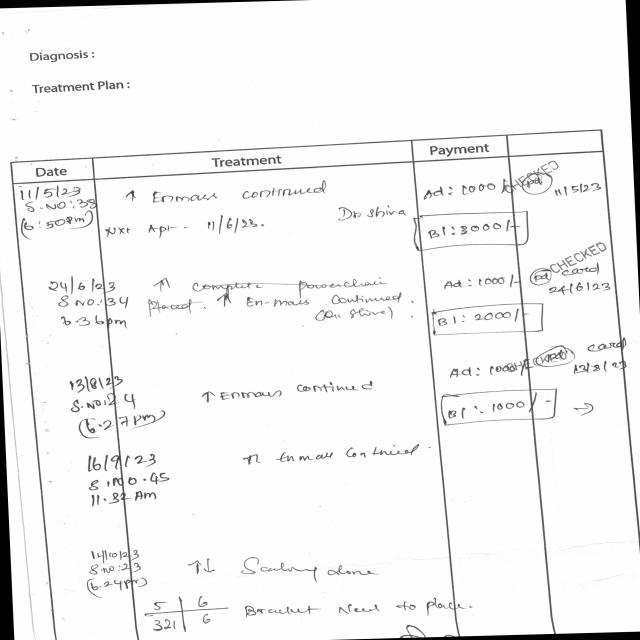 Diagnosis :
Treatment Plan :
Date Treatment Payment
11/5/23 ↑ Enmass continued Ad: 1000/- CHECKED pd 11/5/23
S.NO:38
(6:50pm) Nxt Apt-- 11/6/23. Dr shiva B1: 3000/-
24/6/23 ↑ complete powerchain Ad: 1000/- pd CHECKED card
S NO: 34 placed. ↑ En-mass Continued. 24/6/23
6.36pm (Dr Shiva). B1: 2000/-
13/8/23 ↑ Enmass continued Ad: 1000/- CHECKED card
S.NO:24 13/8/23
(6.27pm) B1:. 1000/- →
16/9/23 ↑ Enmass Continued.
S.NO.45
11.32 Am
14/10/23
S.no:23 ↑↓ Scaling done
(6.24pm)
5 | 6 Bracket Need to place.
321 | 6